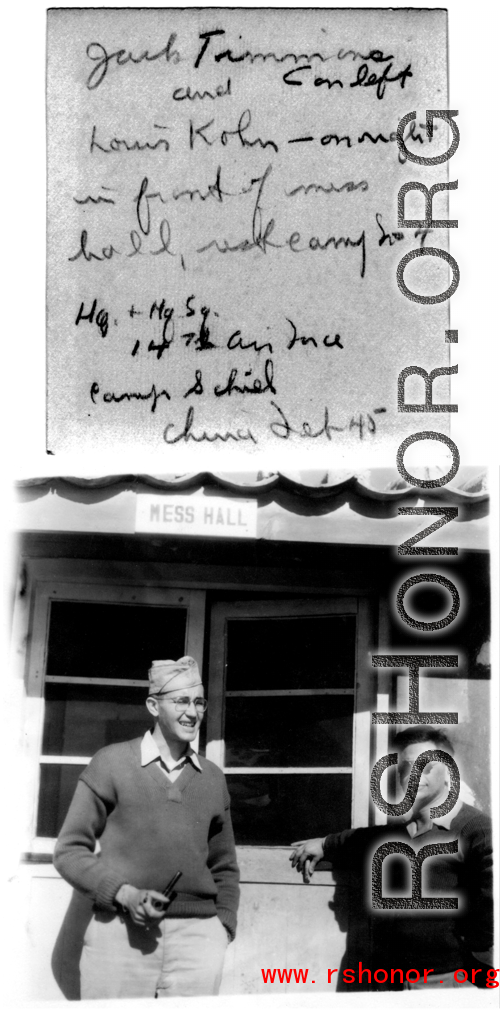 Jack Timmins
and (on left
Louis Kohn - on right
in front of mess
hall, rest camp
Hq. + Hq. Sq.
14 Th Air Force
Camp Schiel
China Feb 45
MESS HALL
RSHONOR.ORG
www.rshonor.org